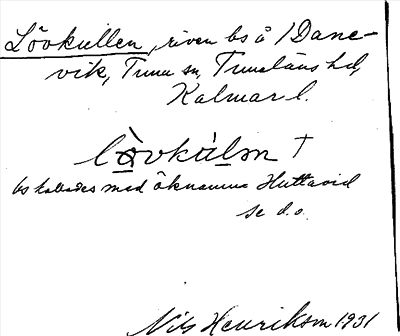 Lövkullen, riven bs å 1 Dane-
vik, Tuna sn, Tunaläns hd,
Kalmar l.
lòvkúlm †
bs kallades med öknamn Huttavid
se d.o.
Nils Henriksm 1931